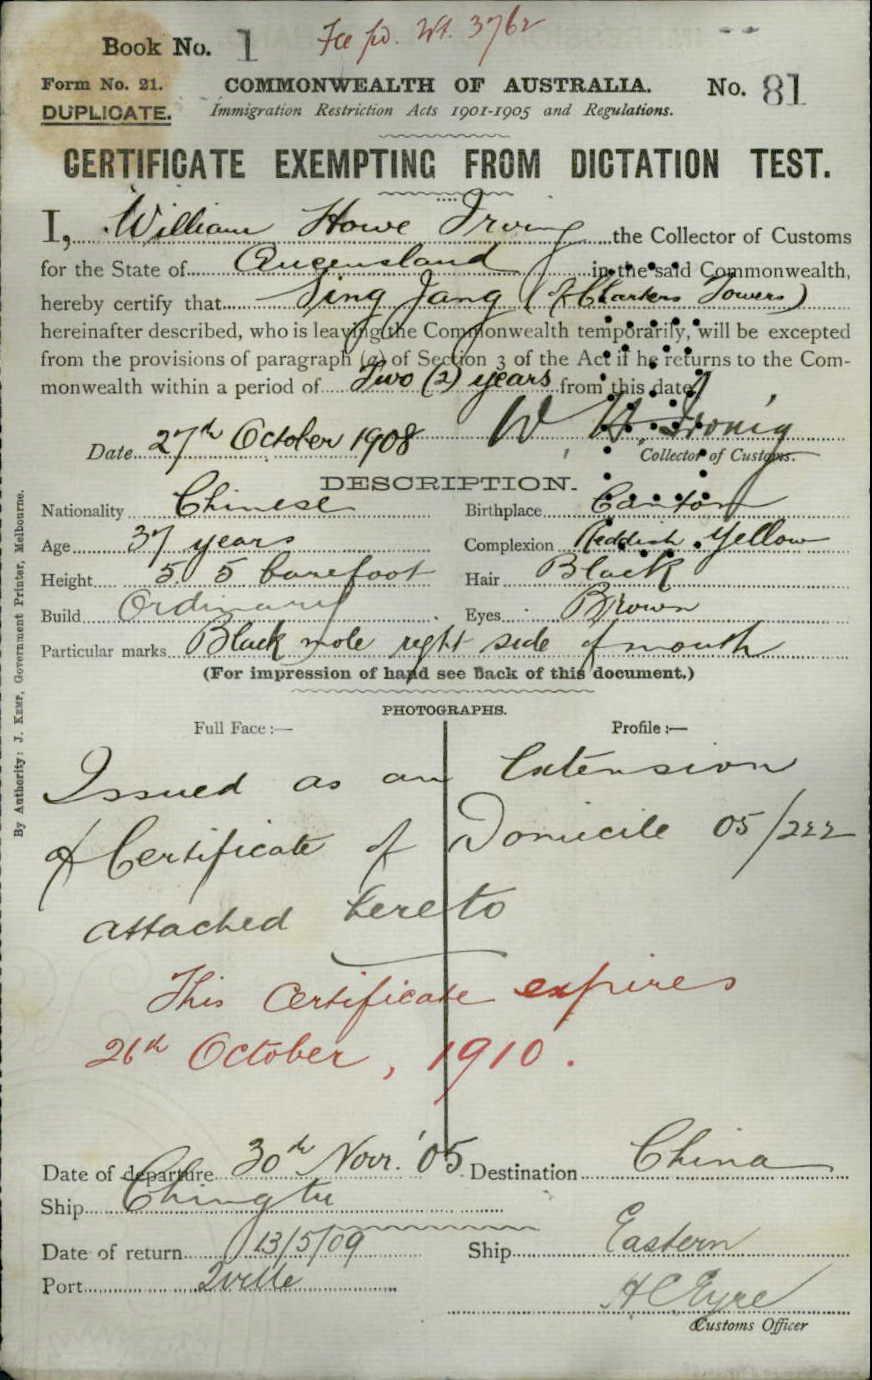 Book No. 1 Fee pd. Wt. 3762
Form No. 21. COMMONWEALTH OF AUSTRALIA. No. 81
DUPLICATE. Immigration Restriction Acts 1901-1905 and Regulations.
CERTIFICATE EXEMPTING FROM DICTATION TEST.
I, William Howe Irving the Collector of Customs
for the State of Queensland in the said Commonwealth,
hereby certify that Sing Jang (of Charters Towers)
hereinafter described, who is leaving the Commonwealth temporarily, will be excepted
from the provisions of paragraph (a) of Section 3 of the Act if he returns to the Com-
monwealth within a period of Two (2) years from this date
W. H. Irving
Date 27th October 1908 Collector of Customs.
DESCRIPTION.
Nationality Chinese Birthplace Canton
Age 37 years Complexion Reddish Yellow
Height 5. 5 barefoot Hair Black
Build Ordinary Eyes Brown
Particular marks Black mole right side of mouth
(For impression of hand see Back of this document.)
PHOTOGRAPHS.
Full Face :— Profile :—
Issued as an Extension
of Certificate of Domicile 05/222
attached hereto
This Certificate expires
26th October, 1910.
Date of departure 30th Novr. '05 Destination China
Ship Chingtu
Date of return 13/5/09 Ship Eastern
Port Tville
H C Eyre
Customs Officer
By Authority: J. KEMP, Government Printer, Melbourne.